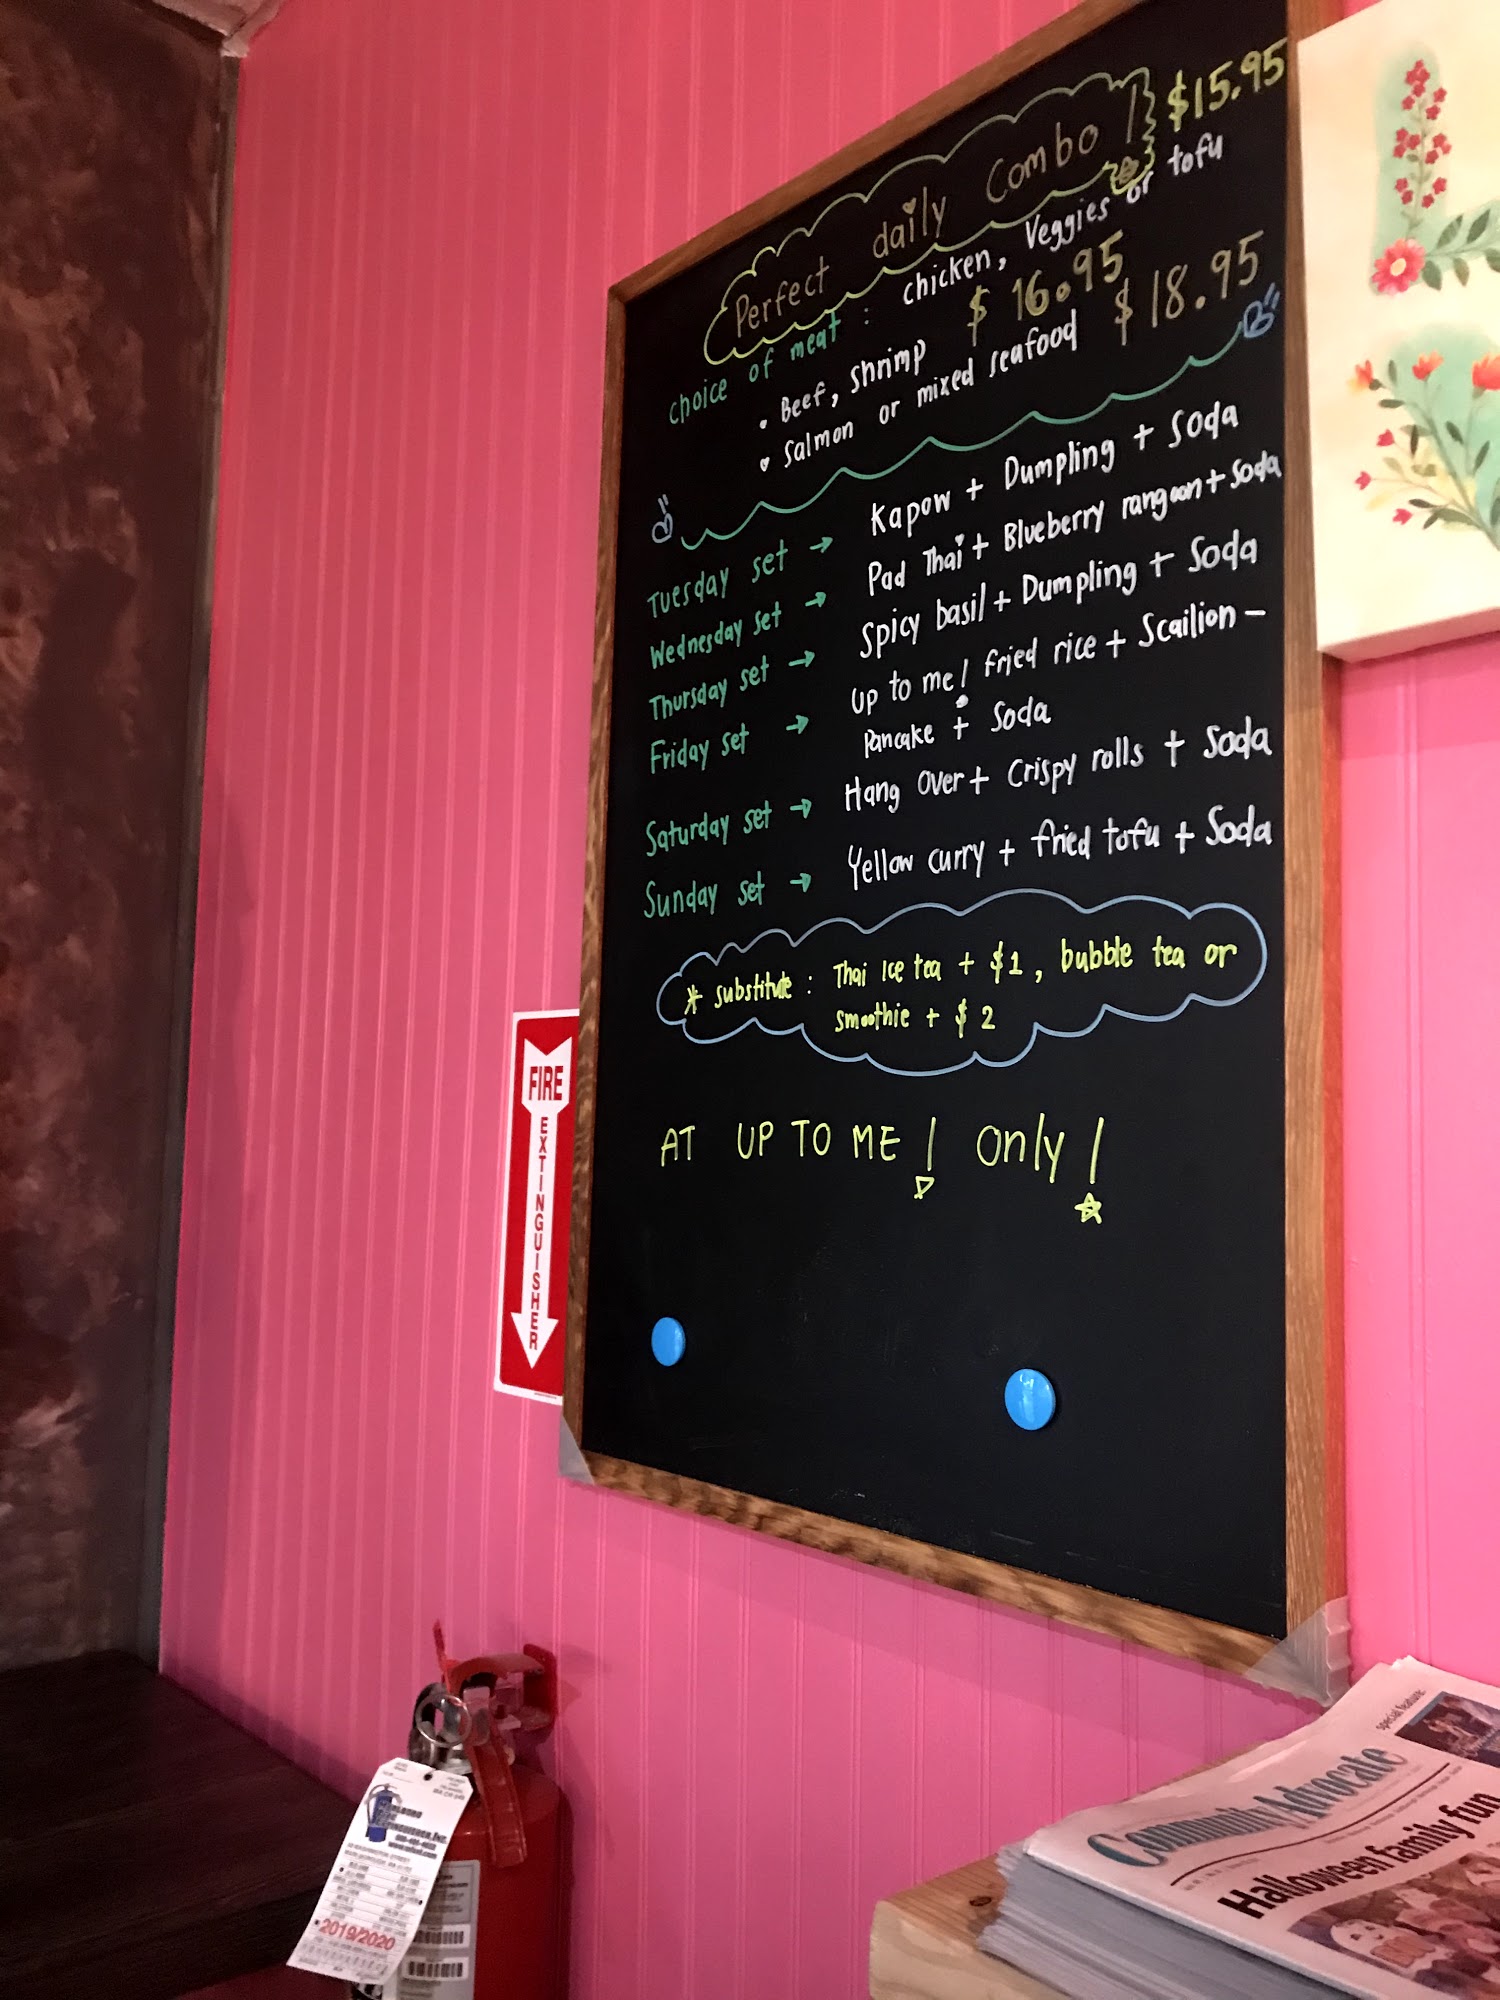 Perfect daily Combo! $15.95
choice of meat : chicken, Veggies or tofu
• Beef, shrimp $16.95
• Salmon or mixed seafood $18.95
Tuesday set → Kapow + Dumpling + Soda
Wednesday set → Pad Thai + Blueberry rangoon + Soda
Thursday set → Spicy basil + Dumpling + Soda
Friday set → up to me! fried rice + Scailion -
Pancake + Soda
Saturday set → Hang Over + Crispy rolls + Soda
Sunday set → Yellow curry + fried tofu + Soda
* Substitute : Thai Ice tea + $1, bubble tea or
Smoothie + $2
AT UP TO ME! Only!
FIRE
EXTINGUISHER
2019/2020
special feature:
Community Advocate
Halloween family fun